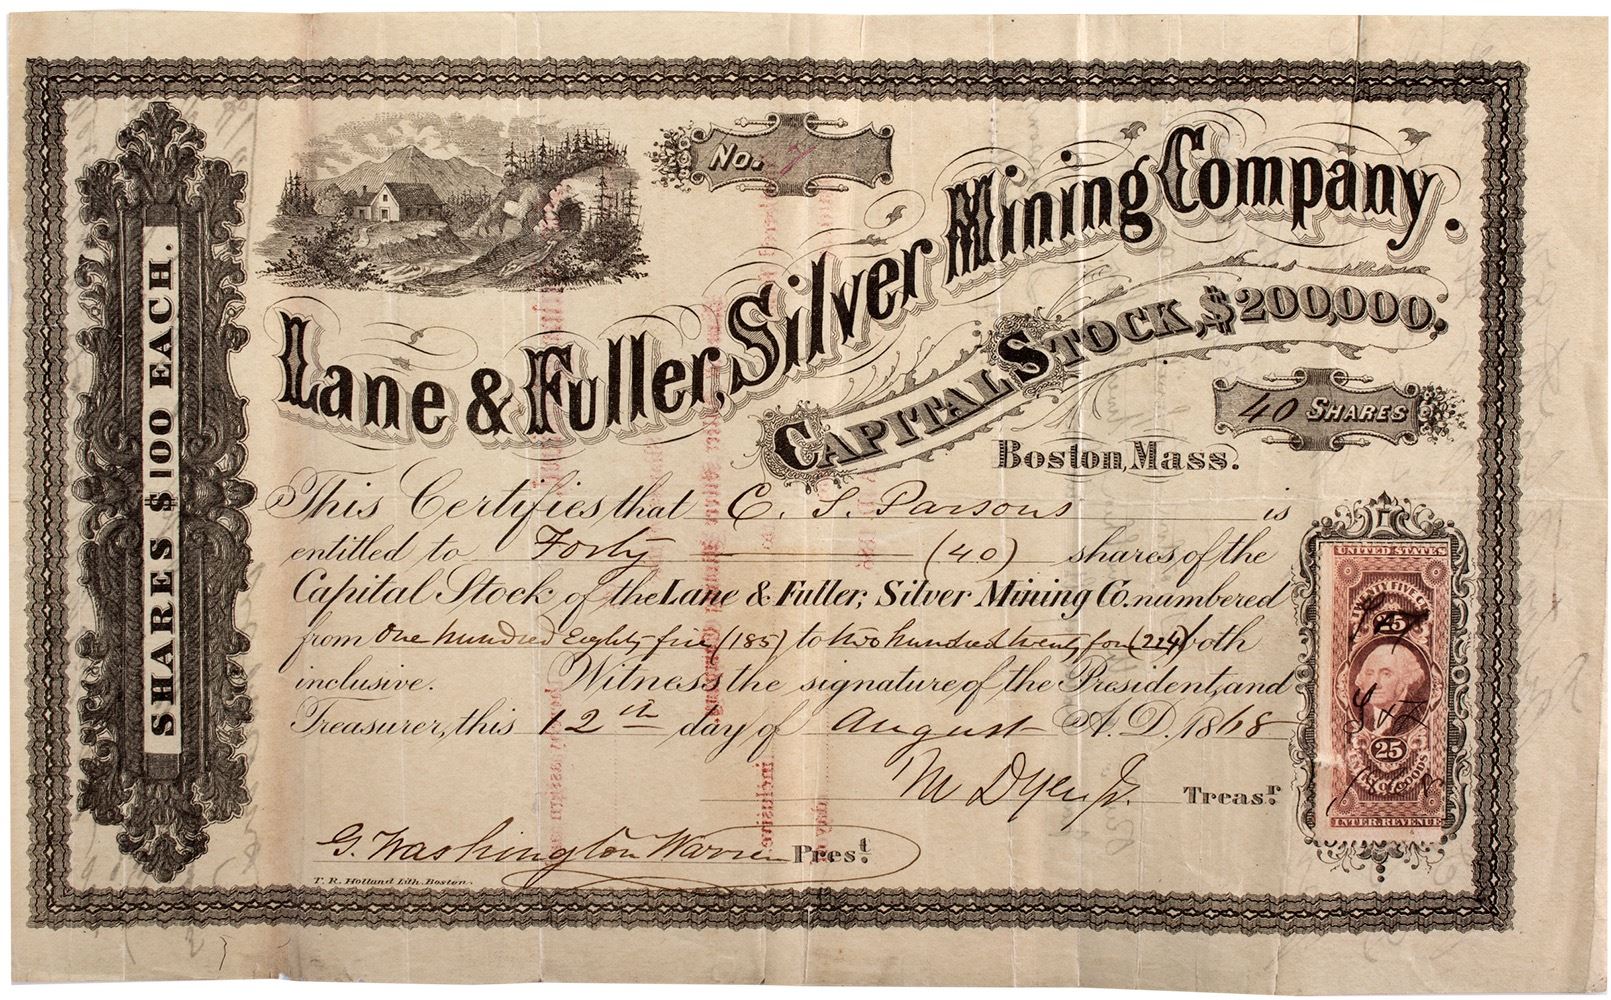 SHARES $100 EACH.
No. 7
Lane & Fuller, Silver Mining Company.
CAPITAL STOCK, $200,000,
40 SHARES
Boston, Mass.
This Certifies that C. S. Parsons is
entitled to Forty (40) shares of the
Capital Stock of the Lane & Fuller, Silver Mining Co. numbered
from One hundred Eighty five (185) to two hundred twenty four (224) both
inclusive. Witness the signature of the President, and
Treasurer, this 12th day of August A.D. 1868
M Dyer Jr. Treasr.
G. Washington Warren Prest.
T. R. Holland Lith. Boston.
UNITED STATES
TWENTY FIVE CTS
25
25
INTER. REVENUE